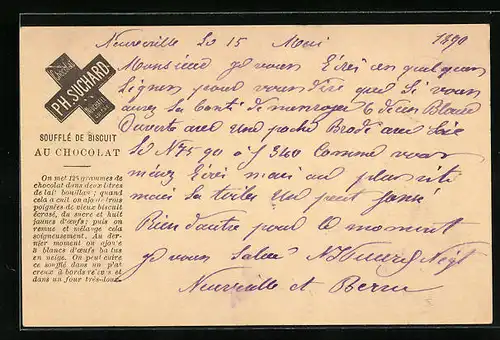 Neuveville le 15 Mai 1890
CHOCOLAT
PH. SUCHARD
NEUCHATEL
SOUFFLÉ DE BISCUIT
AU CHOCOLAT
On met 125 grammes de
chocolat dans deux litres
de lait bouillant; quand
cela a cuit on ajoute trois
poignées de vieux biscuit
écrasé, du sucre et huit
jaunes d'œufs; puis on
remue et mélange cela
soigneusement. Au der-
nier moment on ajoute
8 blancs d'œufs battus
en neige. On peut cuire
ce soufflé dans un plat
creux à bords relevés et
dans un four très-doux.
Monsieur je vous écris en quelques
lignes pour vous dire que si vous
avez la bonté de m'envoyer 6
ouverte avec une poche Brodé avec
le No 7590 à f 340 Comme vous
m'avez écris mais au plus vite
mais la toile un peut foncé
Rien d'autre pour le moment
je vous salue
Neuveville et Berne